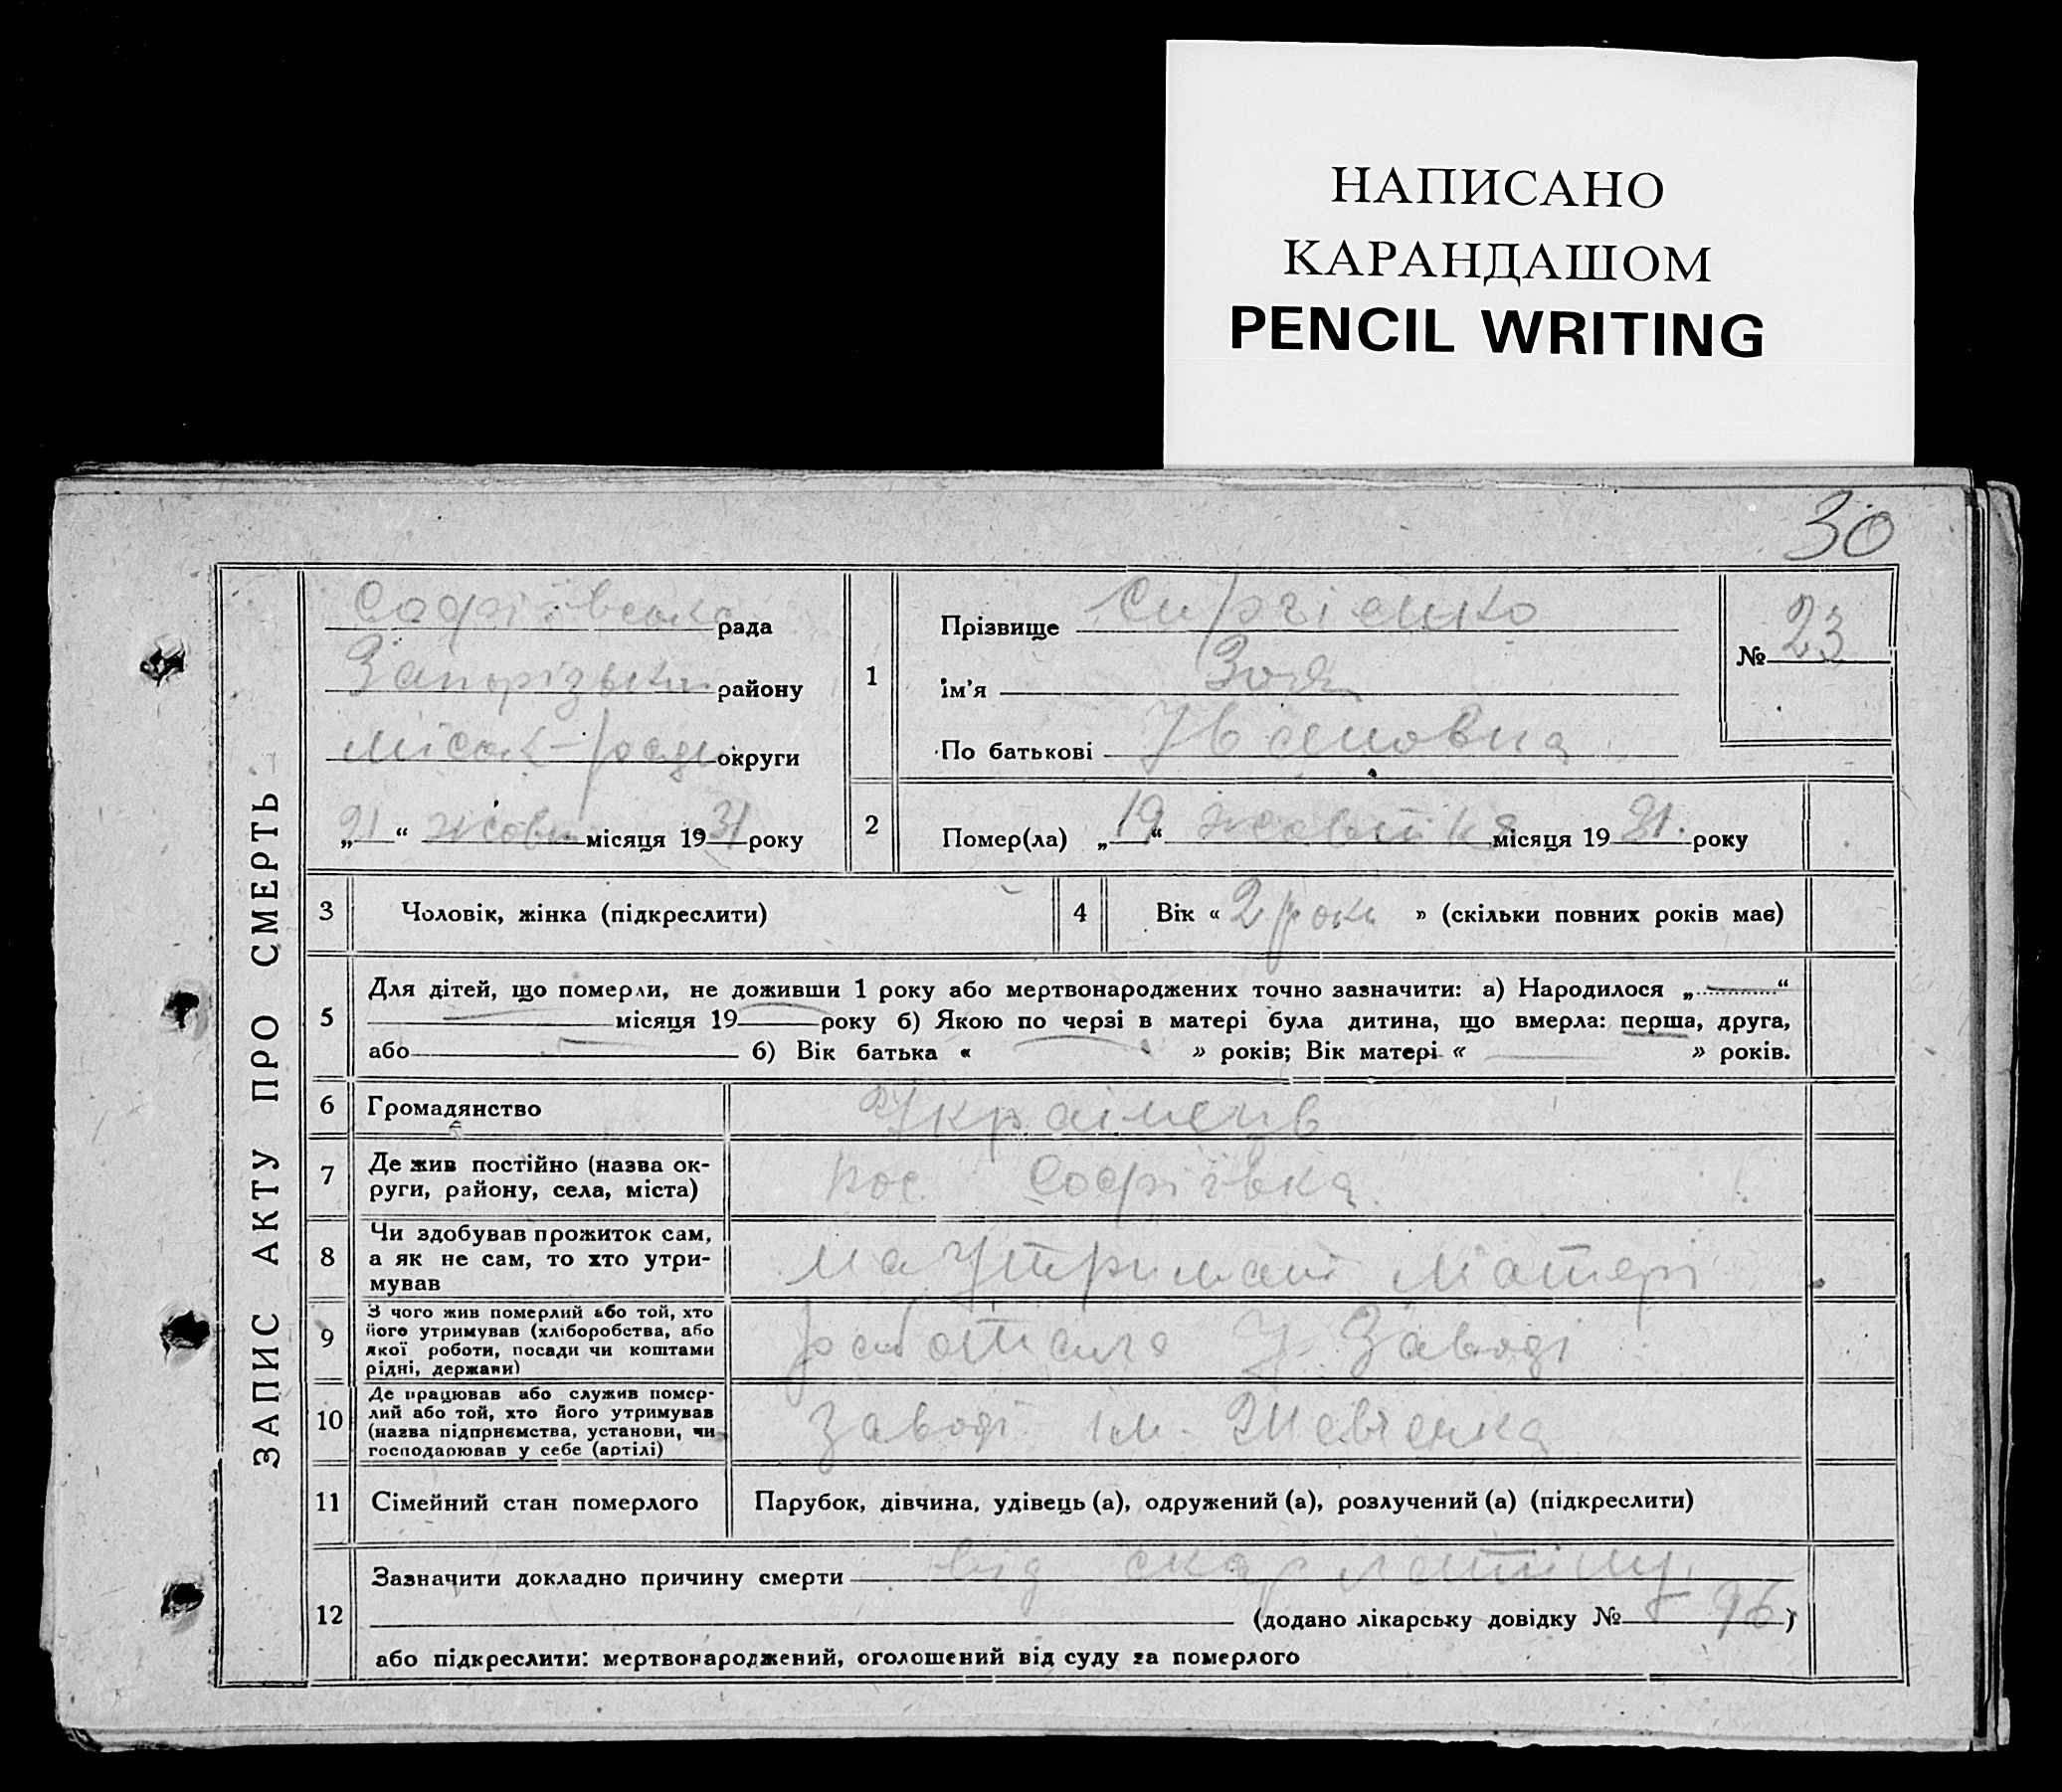 НАПИСАНО
КАРАНДАШОМ
PENCIL WRITING
30
ЗАПИС АКТУ ПРО СМЕРТЬ
Софіївська рада
Запорізької району
міськ-ради округи
„21“ жовтн місяця 1931 року
1
Прізвище Сиргієнко
Ім'я Зоя
По батькові Івановна
№ 23
2 Помер(ла) „19“ жовтня місяця 1931. року
3 Чоловік, жінка (підкреслити)
4 Вік «2 роки» (скільки повних років має)
5 Для дітей, що померли, не доживши 1 року або мертвонароджених точно зазначити: а) Народилося „ “
місяця 19 року б) Якою по черзі в матері була дитина, що вмерла: перша, друга,
або б) Вік батька « » років; Вік матері « » років.
6 Громадянство Українців
7 Де жив постійно (назва ок-
руги, району, села, міста)
пос. Софіївка.
8 Чи здобував прожиток сам,
а як не сам, то хто утри-
мував
на Утримані Матері
9 З чого жив померлий або той, хто
його утримував (хліборобства, або
якої роботи, посади чи коштами
рідні, держави)
У Заводі
10 Де працював або служив помер-
лий або той, хто його утримував
(назва підприємства, установи, чи
господарював у себе (артілі)
Заводі ім. Шевченка
11 Сімейний стан померлого Парубок, дівчина, удівець (а), одружений (а), розлучений (а) (підкреслити)
12 Зазначити докладно причину смерти від скарлатіни.
(додано лікарську довідку № 96)
або підкреслити: мертвонароджений, оголошений від суду за померлого